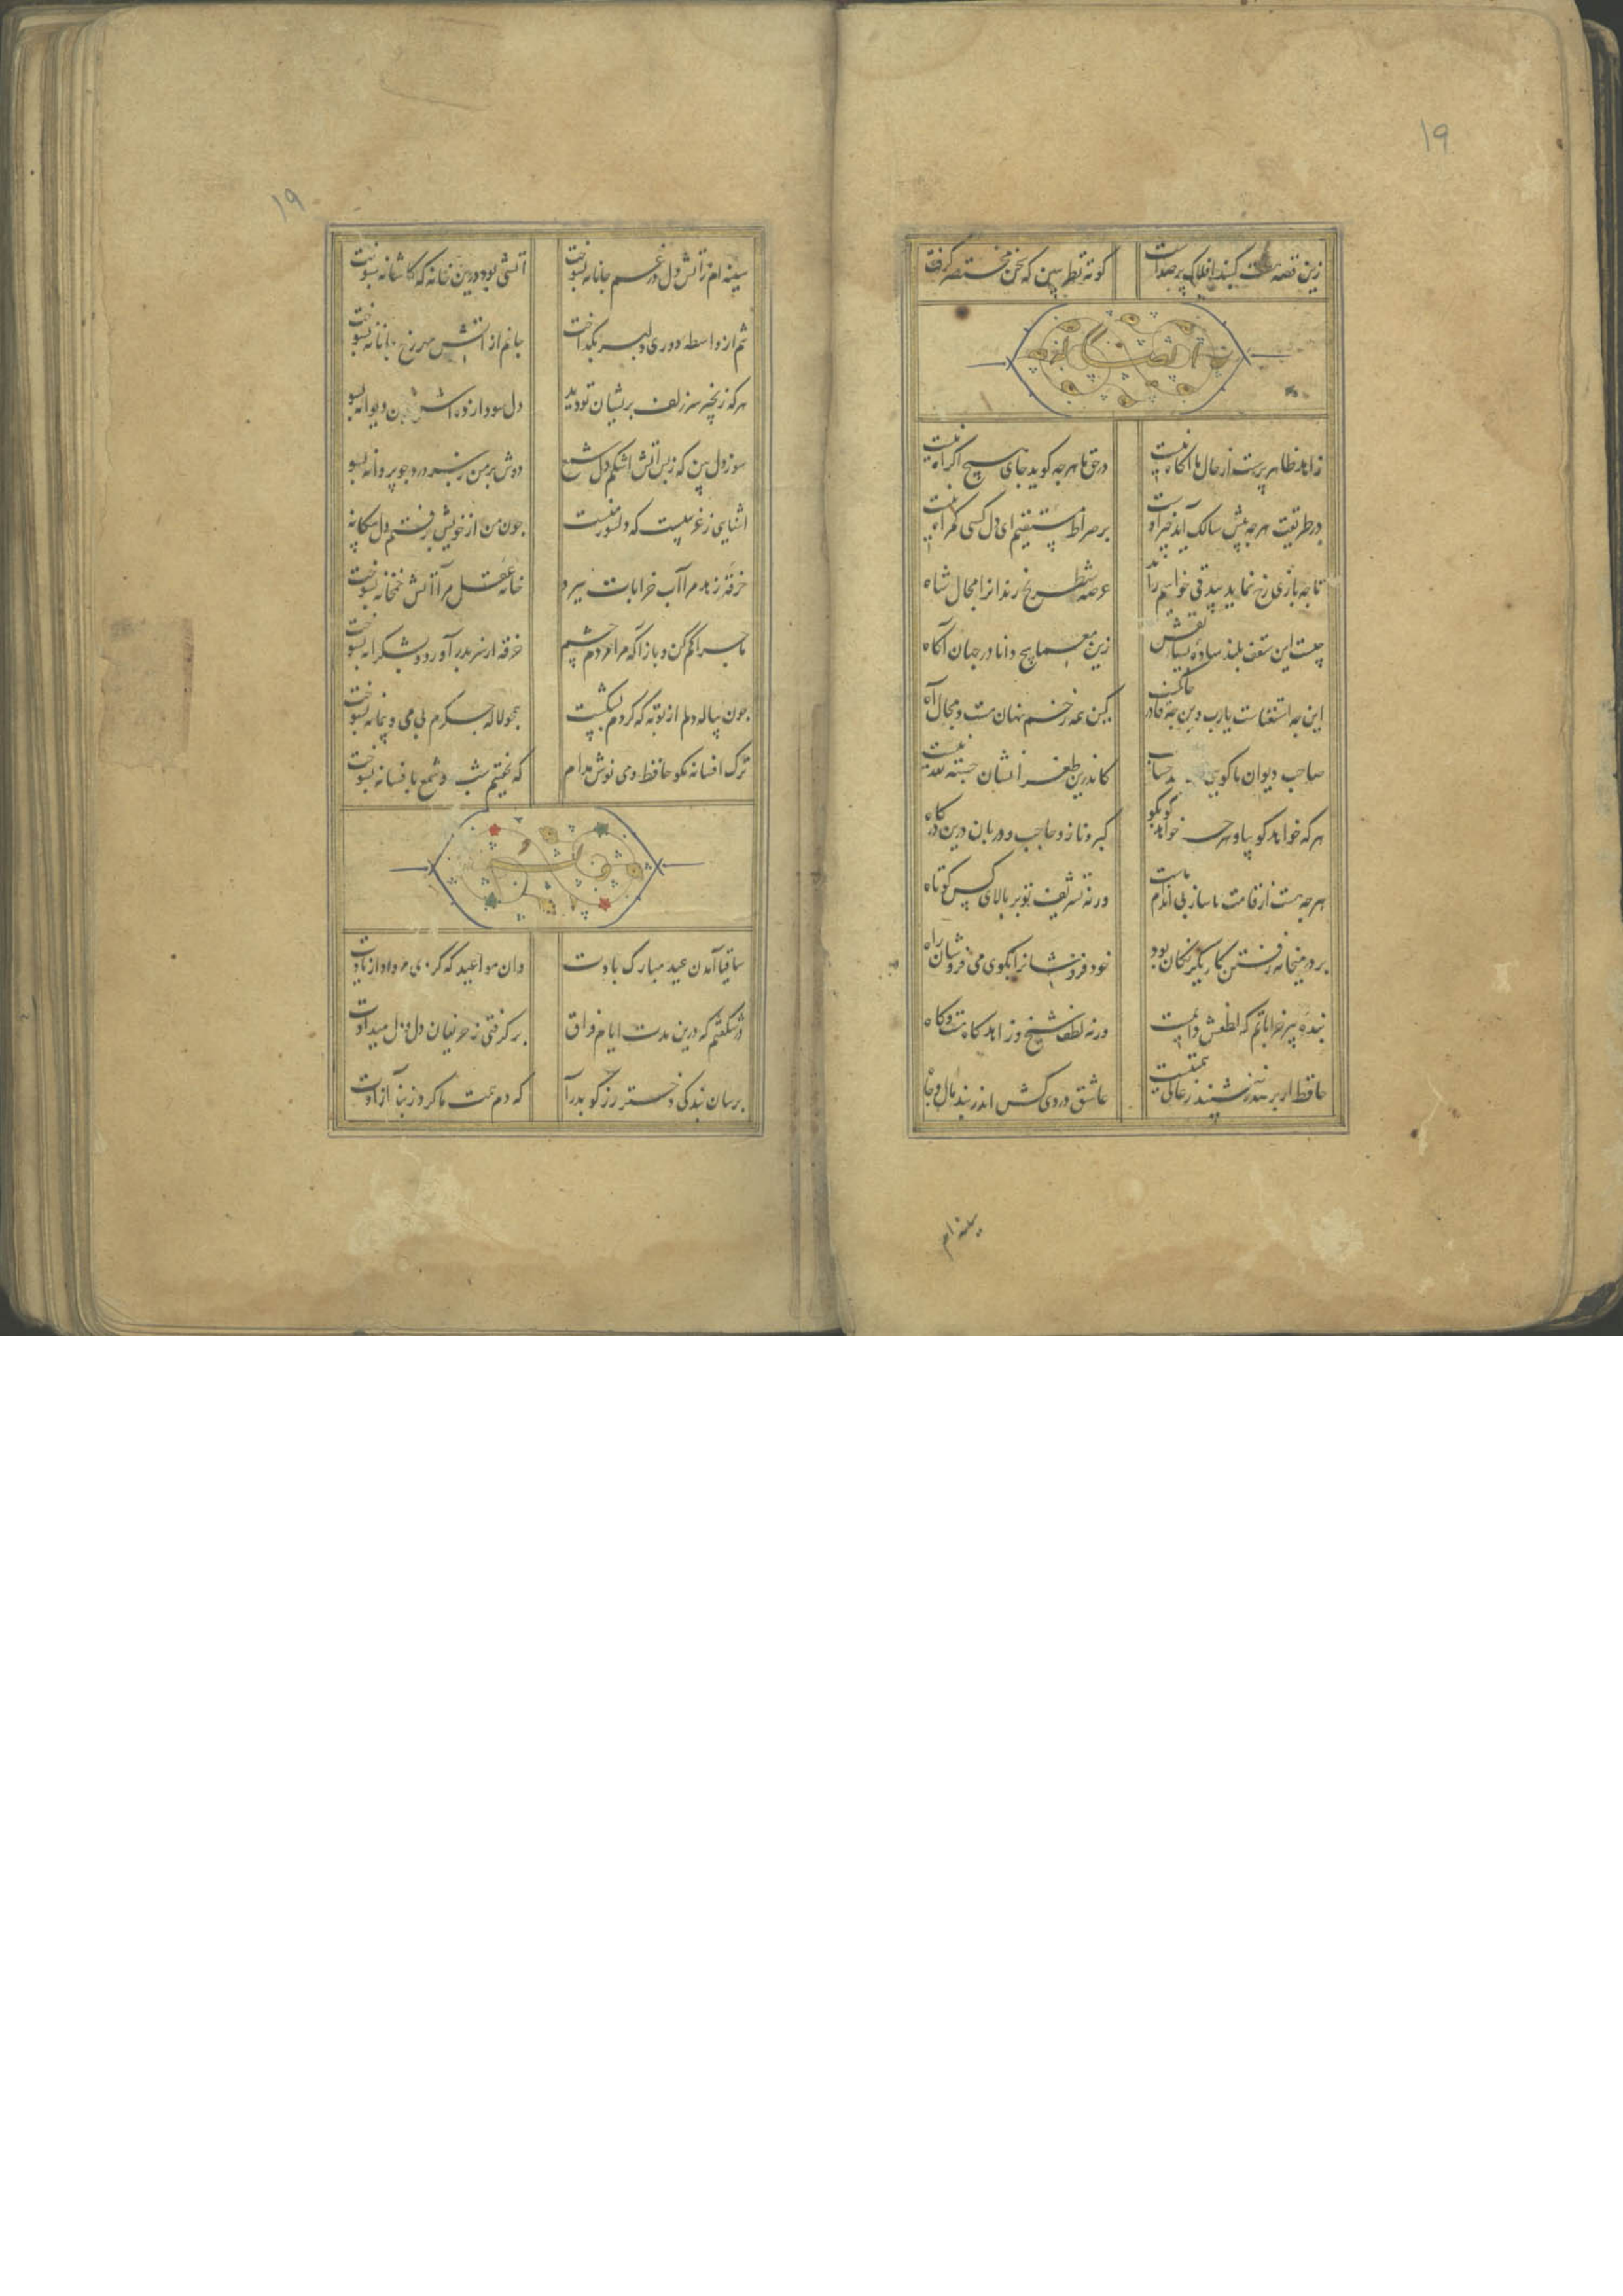 ۱۹
زین قصه هفت گنبد افلاک پر صداست
کوته نظر ببین که سخن مختصر گرفت
زاهد ظاهر پرست از حال ما آگاه نیست
در حق ما هرچه گوید جای هیچ اکراه نیست
در طریقت هرجه پیش سالک آید خیر اوست
بر صراط مستقیم ای دل کسی گمراه نیست
تا جه بازی رخ نماید بیدقی خواهیم راند
عرصه شطرنج رندانرا مجال شاه
چیست این سقف بلند ساده بسیار نقش
زین معما هیچ دانا در جهان آگاه
این جه استغناست یارب وین جه قادر حاکمست
کین همه زخم نهان هست و مجال آه
صاحب دیوان ما گویی حساب
کاندرین طغرا نشان حسبة لله نیست
هرکه خواهد گو بیا و هرجه خواهد گو بگو
کبر و ناز و حاجب و دربان درین درگاه
هرجه هست از قامت ناساز بی اندام ماست
ورنه تشریف تو بر بالای کس کوتاه
بر در میخانه رفتن کار یکرنکان بود
خود فروشانرا بکوی می فروشان راه
بنده پیر خراباتم که لطفش دایمست
ورنه لطف شیخ و زاهد کاه هست و کاه
حافظ ار بر صدر ننشیند ز عالی همتیست
عاشق دردی کش اندر بند مال و جاه
سینه ام
۱۹
سینه ام ز آتش دل در غم جانانه بسوخت
آتشی بود درین خانه که کاشانه بسوخت
تنم از واسطه دوری دلبر بکداخت
جانم از آتش مهر رخ جانانه بسوخت
هرکه زنجیر سر زلف پریشان تو دید
دل سودازده اش بر من دیوانه بسو
سوز دل بین که ز بس آتش اشکم دل شمع
دوش بر من ز سر درد جو پروانه بسو
اشنایی نه غریبست که دلسوز منست
جون من از خویش برفتم دل بیکانه
خرقه زهد مرا آب خرابات ببرد
خانه عقل مرا آتش خمخانه بسوخت
ماجرا کم کن و باز آ که مرا مردم چشم
خرقه از سر بدر آورد و بشکرانه بسوخت
جون پیاله دلم از توبه که کردم بشکست
همجو لاله جکرم بی می و پیمانه بسوخت
ترک افسانه مکو حافظ و می نوش مدام
که نخفتیم شب و شمع بافسانه بسوخت
ساقیا آمدن عید مبارک بادت
وان مواعید که کردی مرواد از یادت
در شکفتم که درین مدت ایام فراق
برکرفتی ز حریفان دل و دل میدادت
برسان بندکی دختر رز کو بدر آ
که دم همت ما کرد ز بند آزادت